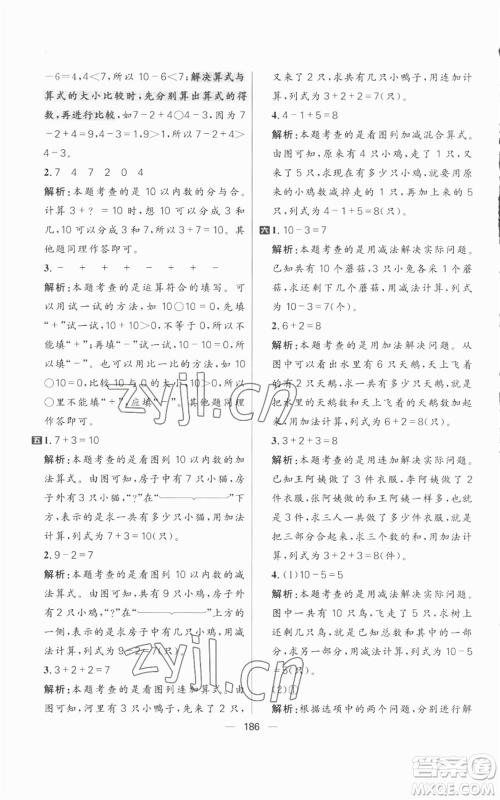 -6=4,4<7,所以 10-6<7;解决算式与
算式的大小比较时,先分别算出算式的得
数,再进行比较,如 7-2+4○4-3,因为 7
-2+4=9,4-3=1,9>1,所以 7-2+4>
4-3。
2.7 4 7 2 0 4
解析:本题考查的是 10 以内数的分与合。
计算 3+?=10,因为 10 可以分成 3 和
7,所以 10-3=7,所以 3 和 7 组成 10。其
他题同理作答即可。
3.- + + + + -
解析:本题考查的是运算符合的填写。可
以用试一试的方法,因为 10○10=0,可以
先填“+”试一试,10+10>0,不等于 0,所以
不能填“+”;再填“-”试一试,10-10=0,所
以可以填“-”。根据试一试的结果,在 10
○10=0,不能填“+”,应填“-”。其他题同理
作答即可。
五 1.7+3=10
解析:本题考查的是看图列 10 以内数的加
法算式。由图可知,房子里有 7 只小猫,房
子外有 3 只小猫,“?”在“ ”的
下方,表示的是求一共有多少只小猫,用加
法计算,列式为 7+3=10(只)。
2.9-2=7
解析:本题考查的是看图列 10 以内数的减
法算式。由图可知,共有 9 只小鸡,房子外
有 2 只小鸡,“?”在“ ”上方的
一侧,表示的是求房子中有几只小鸡,用减
法计算,列式为 9-2=7(只)。
3.3+2+2=7
解析:本题考查的是看图列连加算式。由
图可知,河里有 3 只小鸭子,又来了 2 只,
又来了 2 只,求共有几只小鸭子,用连加计
算,列式为 3+2+2=7(只)。
4.4-1+5=8
解析:本题考查的是看图列加减混合算式。
由图可知,原来有 4 只小鸡,走了 1 只,又
来了 5 只,求现在有几只小鸡,就要用原来
的小鸡数减掉走的 1 只,再加上来的 5 只,
列式为 4-1+5=8(只)。
六 1.10-3=7
解析:本题考查的是用减法解决实际问题。
已知共有 10 个蘑菇,3 只小兔各采 1 个蘑
菇,求还剩几个蘑菇,用减法计算,列式为
10-3=7(个)。
2.6+2=8
解析:本题考查的是用加法解决问题。从
图中可以看出水里有 6 只天鹅,岸上有 2
只天鹅,求天上与水里的天鹅共有几只,就
是把水里的天鹅数和天上的天鹅数加起
来,用加法计算,列式为 6+2=8(只)。
3.3+2+3=8
解析:本题考查的是用连加解决实际问题。
已知王阿姨做了 3 件衣服,李阿姨做了 2
件衣服,张阿姨做的和王阿姨一样多,也是
3 件衣服,求三个人一共做了多少件衣服,
就是把三部分合起来,用加法计算,列式为
3+2+3=8(件)。
4.(1)10-5=5
解析:本题考查的是用减法解决实际问题。
从图中可以看出共有 10 只鸟,飞走了 5
只,求树上还剩几只,就是已知总数和其中
的一部分,求另一部分,用减法计算,10-5
=5(只)。
(2)①
解析:根据选项中的两个问题,分别进行解
186
zyjl.cn
zyjl.cn